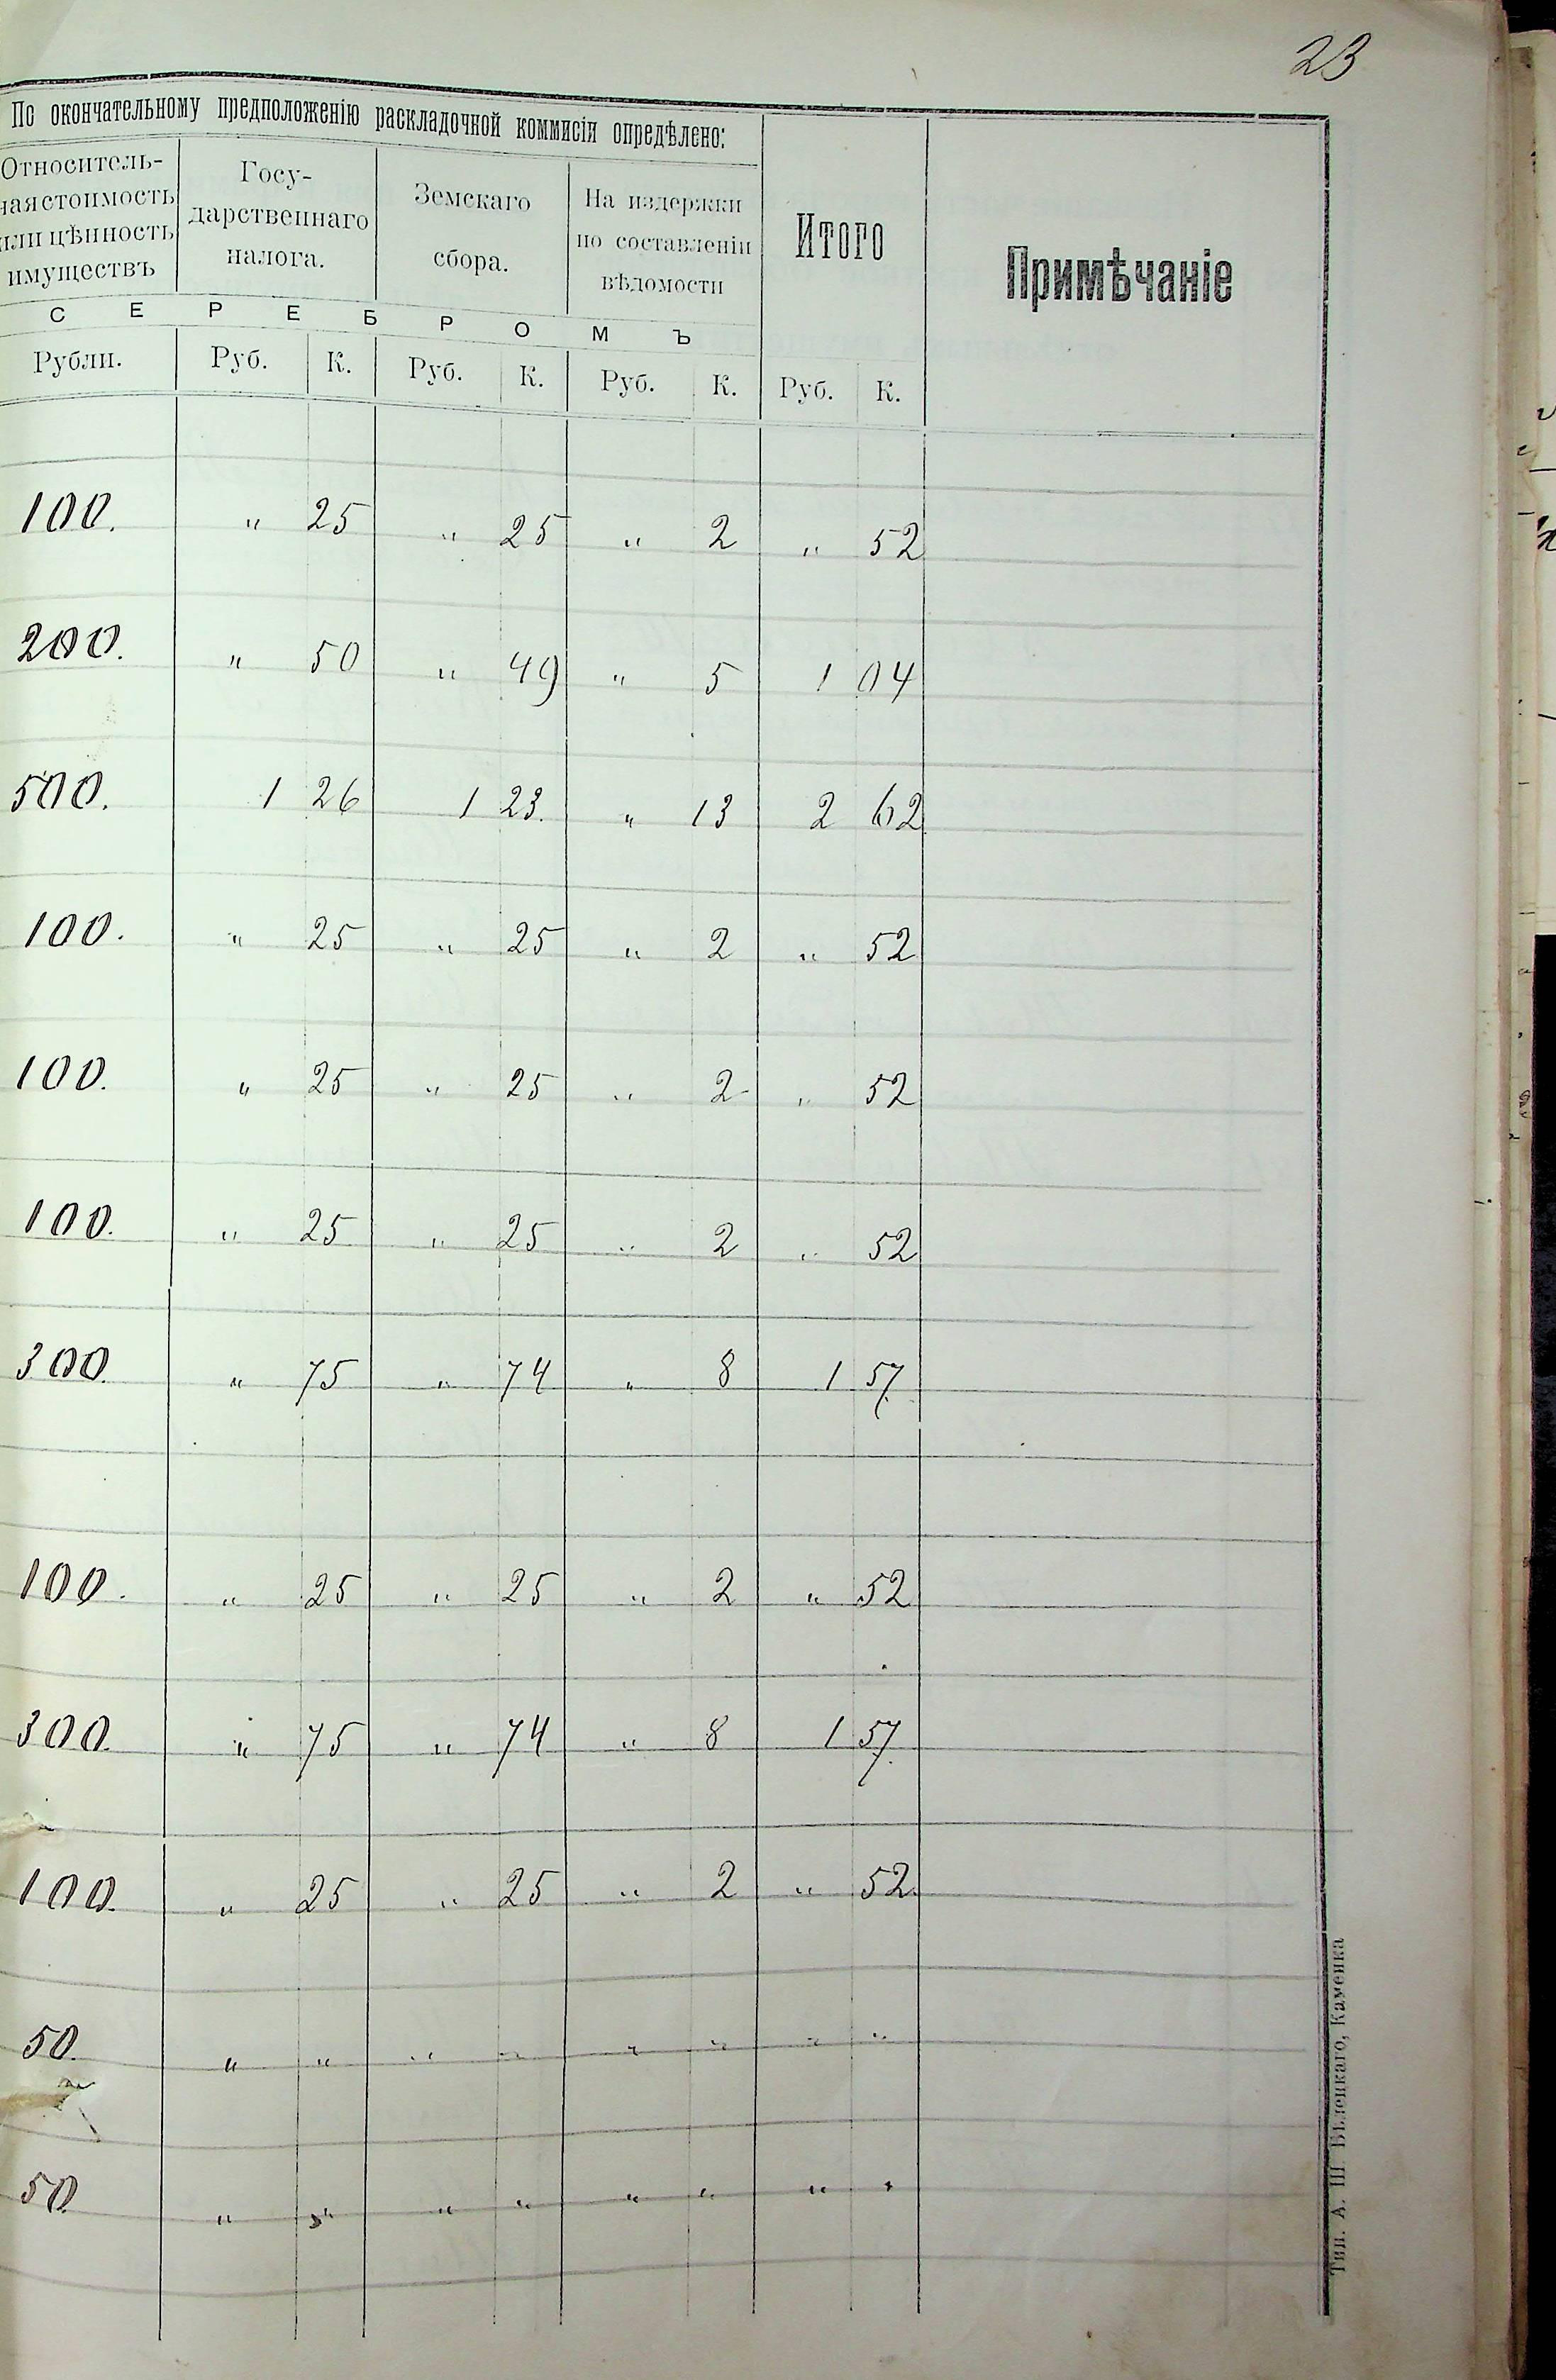 23
По окончательному предположенію раскладочной коммисіи опредѣлено:
Относитель-
ная стоимость
или цѣнность
имуществъ
Госу-
дарственнаго
налога.
Земскаго
сбора.
На издержки
по составленіи
вѣдомости
Итого
Примѣчаніе
С Е Р Е Б Р О М Ъ
Рубли. Руб. К. Руб. К. Руб. К. Руб. К.
100. " 25 " 25 " 2 " 52
200. " 50 " 49 " 5 1 04
500. 1 26 1 23. " 13 2 62
100. " 25 " 25 " 2 " 52
100. " 25 " 25 " 2 " 52
100. " 25 " 25 " 2 " 52
300. " 75 " 74 " 8 1 57
100. " 25 " 25 " 2 " 52
300. " 75 " 74 " 8 1 57
100. " 25 " 25 " 2 " 52.
50. " " " " " " " "
50. " " " " " " " "
Тип. А. Ш. Бѣленкаго, Каменка